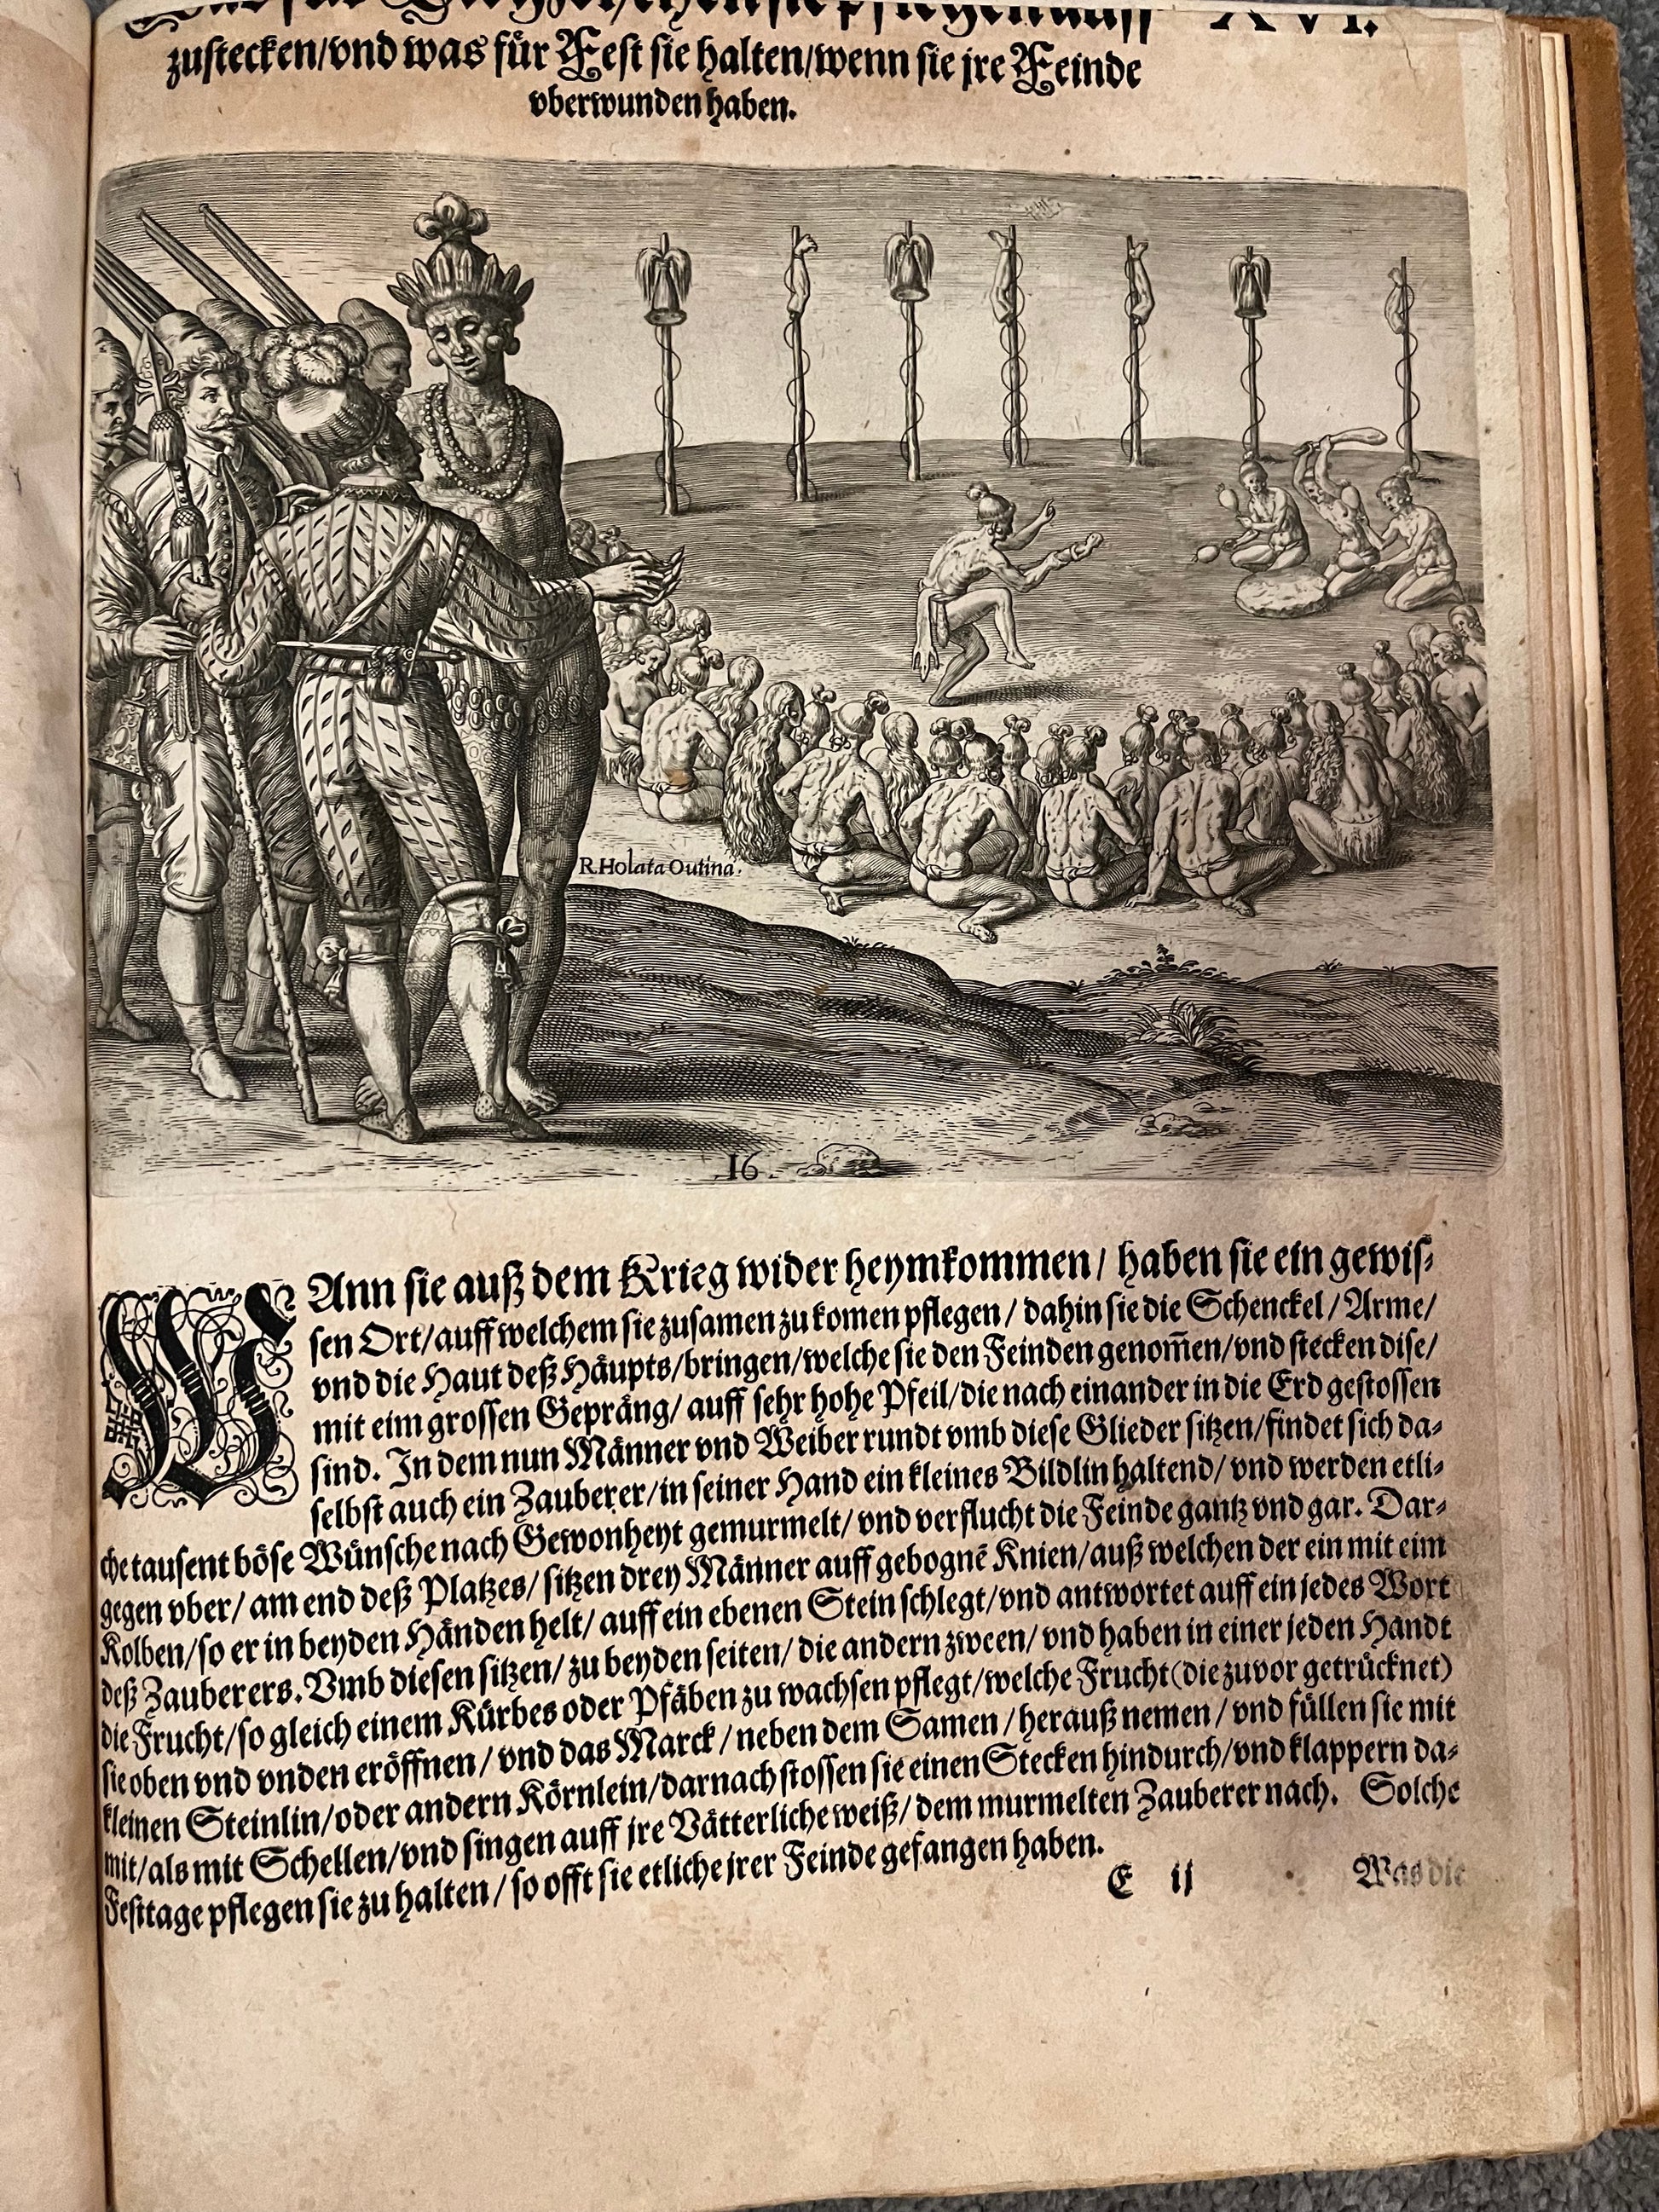 Siegzeichen sie pflegen auff XVI.
zustecken/vnd was für Fest sie halten/wenn sie jre Feinde
vberwunden haben.
R. Holata Outina.
16
WAnn sie auß dem Krieg wider heymkommen/ haben sie ein gewis⸗
sen Ort/auff welchem sie zusamen zu komen pflegen/ dahin sie die Schenckel/Arme/
vnd die Haut deß Häupts/bringen/welche sie den Feinden genom̃en/vnd stecken dise/
mit eim grossen Gepräng/ auff sehr hohe Pfeil/die nach einander in die Erd gestossen
sind. In dem nun Männer vnd Weiber rundt vmb diese Glieder sitzen/findet sich da⸗
selbst auch ein Zauberer/in seiner Hand ein kleines Bildlin haltend/ vnd werden etli⸗
che tausent böse Wünsche nach Gewonheyt gemurmelt/ vnd verflucht die Feinde gantz vnd gar. Dar⸗
gegen vber/ am end deß Platzes/ sitzen drey Männer auff gebognē Knien/auß welchen der ein mit eim
Kolben/so er in beyden Händen helt/ auff ein ebenen Stein schlegt/vnd antwortet auff ein jedes Wort
deß Zauberers. Vmb diesen sitzen/ zu beyden seiten/ die andern zween/ vnd haben in einer jeden Handt
die Frucht/so gleich einem Kürbes oder Pfäben zu wachsen pflegt/welche Frucht (die zuvor getrücknet)
sie oben vnd vnden eröffnen/ vnd das Marck/ neben dem Samen/ herauß nemen/ vnd füllen sie mit
kleinen Steinlin/oder andern Körnlein/darnach stossen sie einen Stecken hindurch/vnd klappern da⸗
mit/als mit Schellen/vnd singen auff jre Vätterliche weiß/ dem murmelten Zauberer nach. Solche
Festtage pflegen sie zu halten/ so offt sie etliche jrer Feinde gefangen haben.
E ij Was die